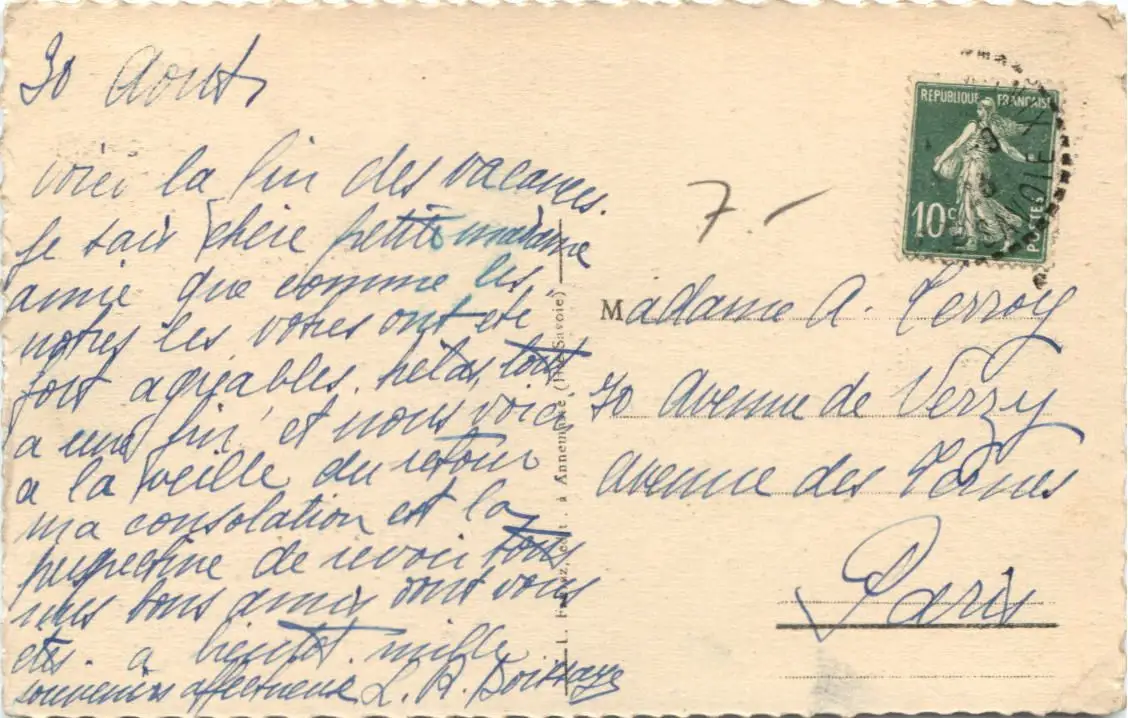 30 Aout,
voici la fin des vacances.
Je sais chère petite madame
amie que comme les
notres les votres ont été
fort agréables. hélas, tout
a une fin, et nous voici
a la veille du retour
ma consolation est la
perspective de revoir tous
mes bons amis dont vous
etes. a bientot. mille
souvenirs affectueux L. R.
7.-
REPUBLIQUE FRANÇAISE
10c
POSTES
SAVOIE
Madame A. Terroy
30 Avenue de Verzy
avenue des Ternes
Paris
L. à Annemasse (Hte-Savoie)